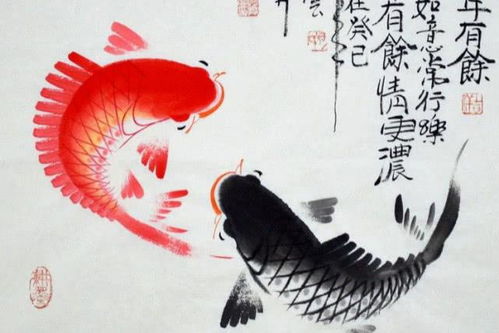 年有餘
如意常行樂
有餘情更濃
在癸巳
雲